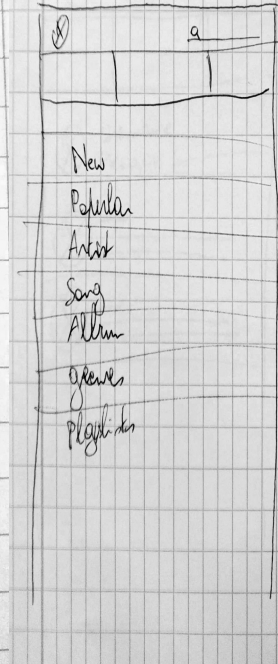 a
New
Popular
Artist
Song
Album
Geenres
Playlists